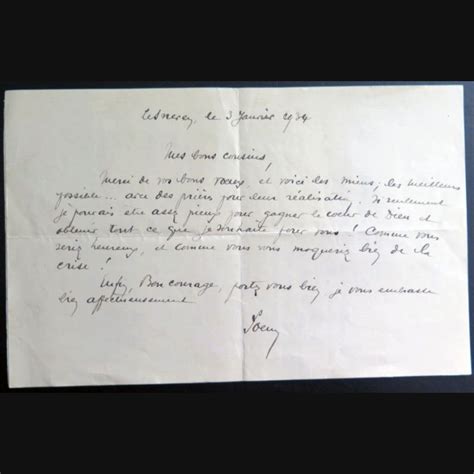 le 3 Janvier 1934
Mes bons cousins,
Merci de vos bons voeux, et voici les miens; les meilleurs
possible... avec des prières pour leur réalisation. Si seulement
je pouvais être assez pieux pour gagner le coeur de Dieu et
obtenir tout ce que je souhaite pour vous! Comme vous
seriez heureux, et comme vous vous moqueriez bien de la
crise!
Enfin, Bon courage, portez vous bien, je vous embrasse
bien affectueusement